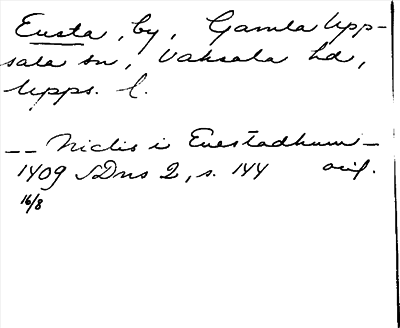 Eusta, by, Gamla Upp-
sala sn, Vaksala hd,
Upps. l.
-- Niclis i Euestadhum --
1409 SDns 2, s. 144 orig.
16/8